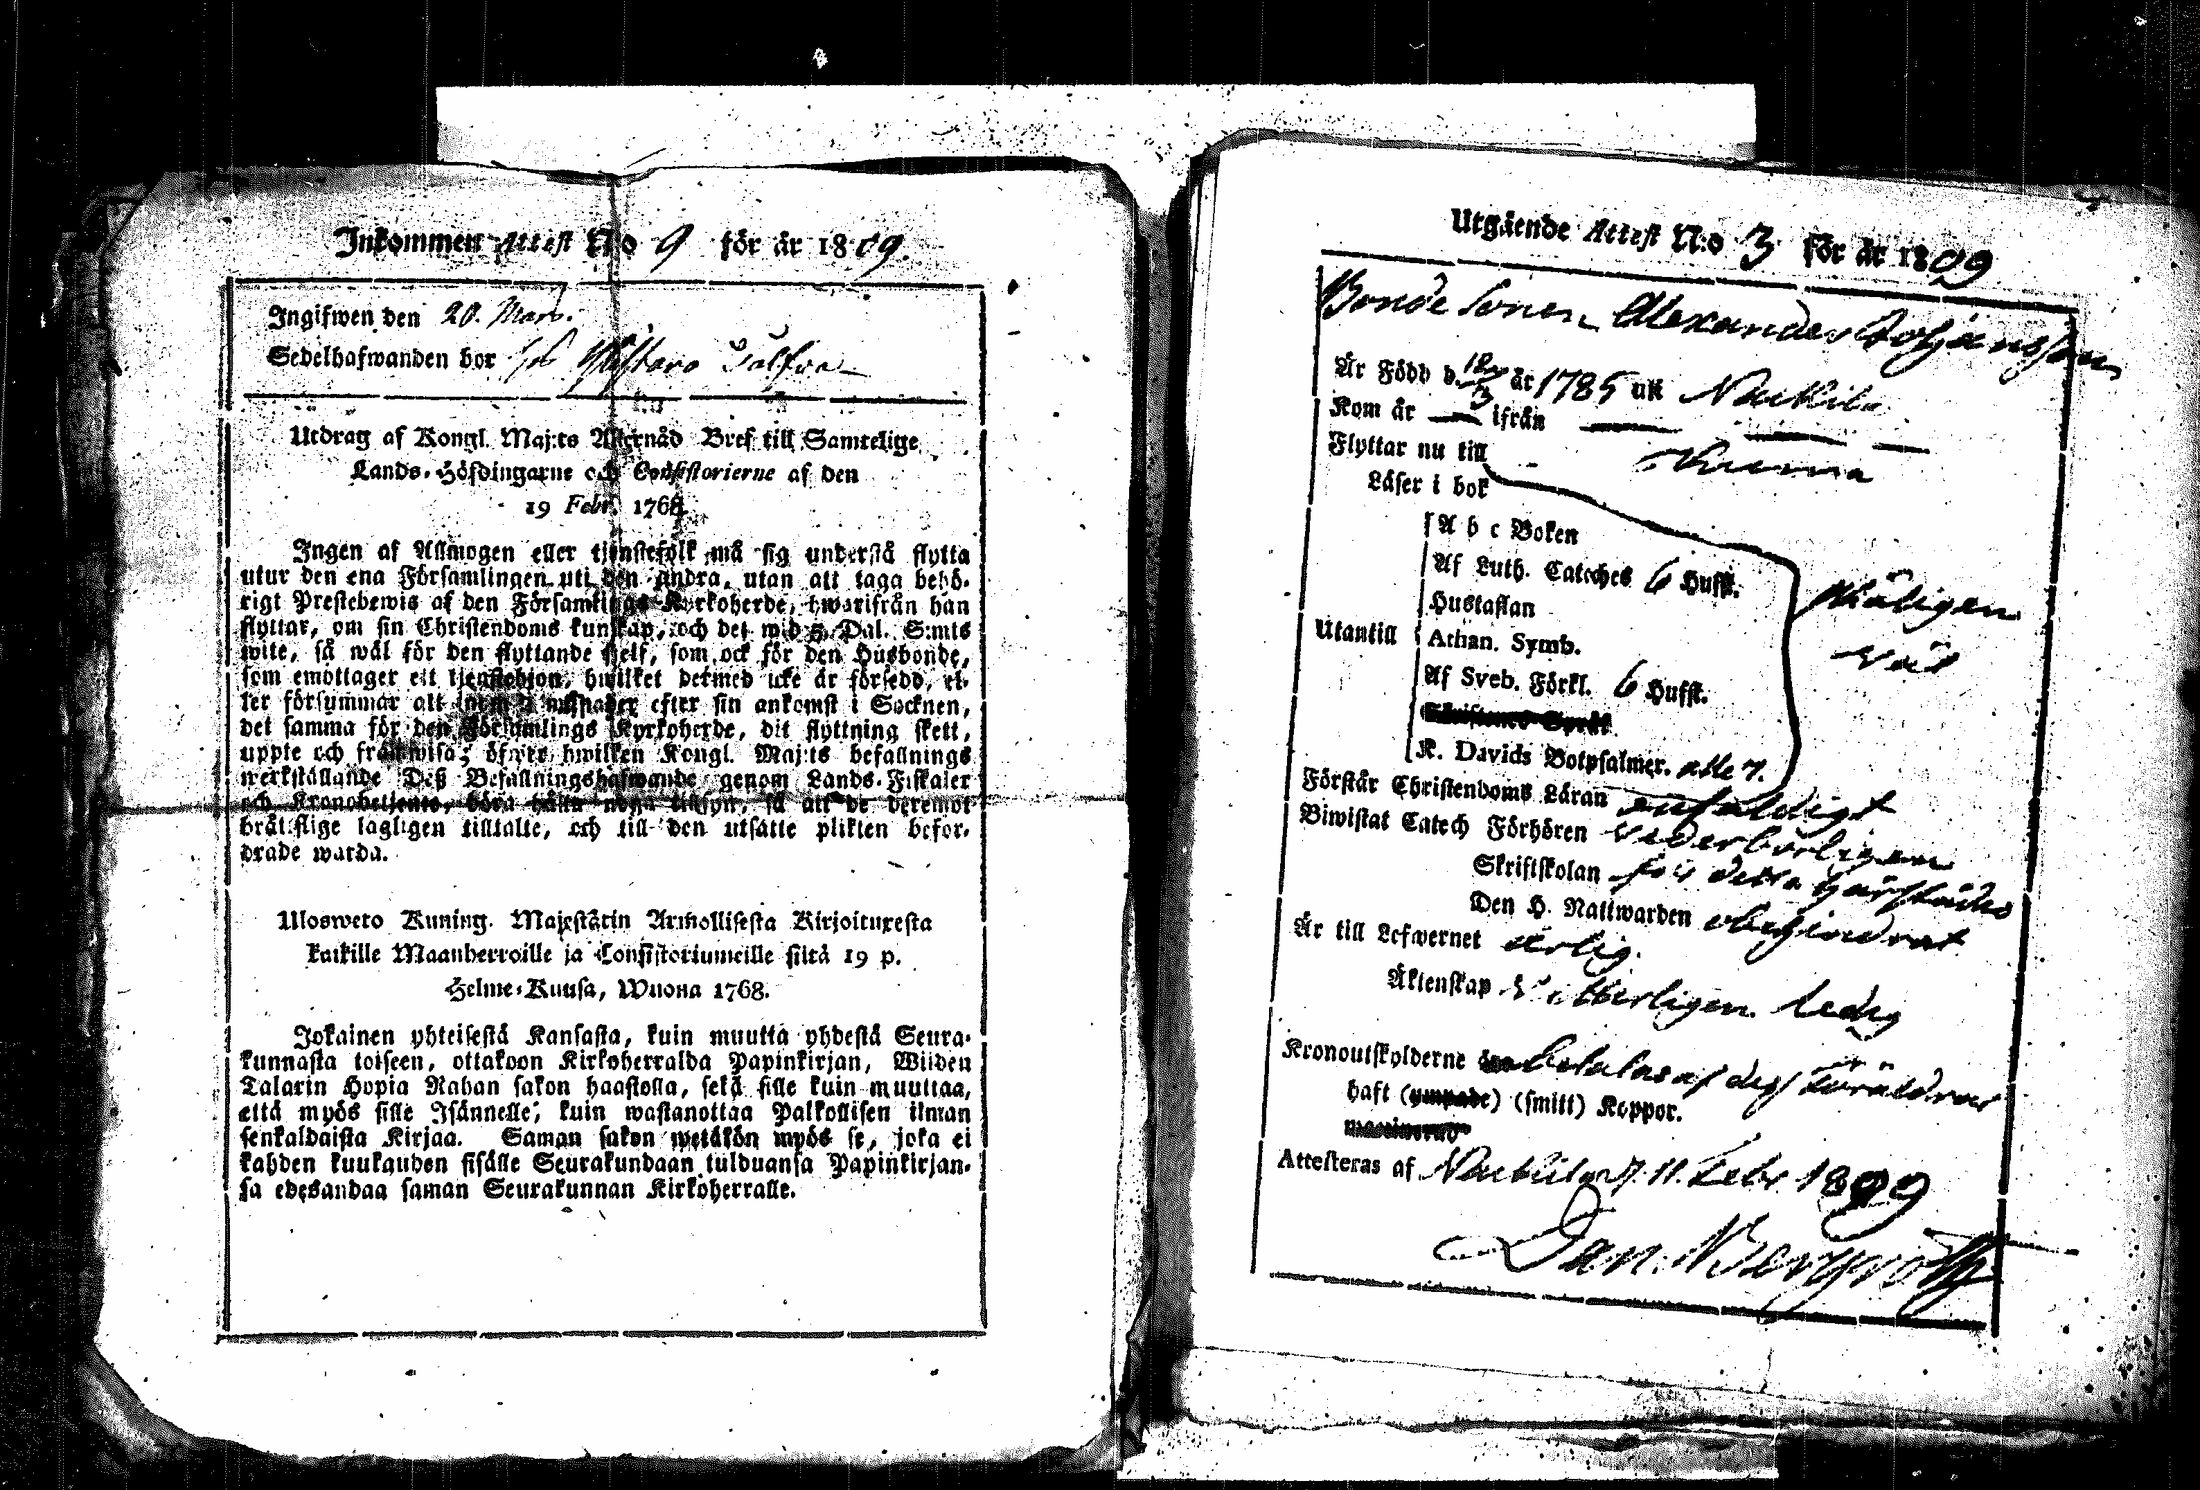 Inkommen Attest N:o 9 för år 1809.
Ingifwen den 20. Mars.
Sedelhafwanden bor
Utdrag af Kongl. Maj:ts Allernåd Bref till Samtelige
Lands-Höfdingarne och Consistorierne af den
19 Febr. 1768.
Ingen af Allmogen eller tjenstefolk må sig understå flytta
utur den ena Församlingen uti den andra, utan att taga behö-
rigt Prestebewis af den Församlings Kyrkoherde, hwarifrån han
flyttar, om sin Christendoms kunskap, och det wid 5 Dal. S:mts
wite, så wäl för den flyttande sjelf, som ock för den Husbonde,
som emottager ett tjenstehjon, hwilket dermed icke är försedd, el-
ler försummar att inom 2 månader efter sin ankomst i Socknen,
det samma för den Församlings Kyrkoherde, dit flyttning skett,
uppte och framwisa; öfwer hwilken Kongl. Maj:ts befallnings
werkställande Deß Befallningshafwande genom Lands-Fiskaler
och Kronobetjente, böra hålla noga tillsyn, så att de deremot
brättslige lagligen tilltalte, och till den utsatte plikten befor-
drade warda.
Ulosweto Kuning. Majestätin Armollisesta Kirjoituxesta
kaikille Maanherroille ja Consistoriumeille siltä 19 p.
Helme-Kuusa, Wuona 1768.
Jokainen yhteisestä Kansasta, kuin muutta yhdestä Seura-
kunnasta toiseen, ottakoon Kirkoherralda Papinkirjan, Wiiden
Talarin Hopia Rahan sakon haastolla, sekä sille kuin muuttaa,
että myös sille Isännelle, kuin wastanottaa Palkollisen ilman
senkaldaista Kirjaa. Saman sakon wetäkön myös se, joka ei
kahden kuukauden sisälle Seurakundaan tulduansa Papinkirjan-
sa edesandaa saman Seurakunnan Kirkoherralle.
Utgående Attest N:o 3 för år 1809
Bonde Sonen Alexander Johansson
År Född d. 12/3 år 1785 uti Nackila
Kom år — ifrån —
Flyttar nu till
Läser i bok
A b c Boken
Af Luth. Cateches 6 Hufst.
Hustaflan
Utantill Athan. Symb.
Af Sveb. Förkl. 6 Hufst.
K. Davids Botpsalmer. alle 7.
skäligen
väl
Förstår Christendoms Läran enfaldigt
Biwistat Catech Förhören vederbörligen
Skriftskolan för detta härstädes
Den H. Nattwarden obehindrat
Är till Lefwernet ärlig.
Äktenskap Vitterligen ledig
Kronoutskylderne betalas af dess föräldrar
haft (smitt) Koppor.
Attesteras af Nackila d. 11. Febr 1809
Dan. Bergroth